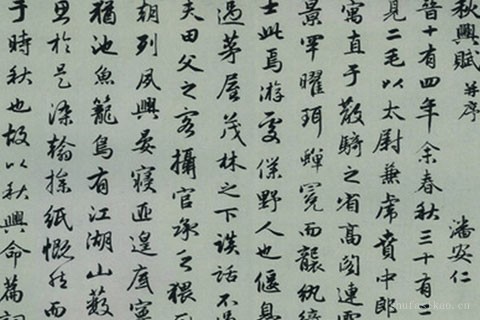 秋興賦 并序 潘安仁
晉十有四年余春秋三十有二
見二毛以太尉兼虎賁中郎
寓直于散騎之省高閣連雲
景罕曜珥蟬冕而襲紈綺
士此焉游處僕野人也偃息
過茅屋茂林之下談話不過
夫田父之客攝官承乏猥
朝列夙興晏寢匪遑底寧
猶池魚籠鳥有江湖山藪
思於是染翰操紙慨然而
于時秋也故以秋興命篇詞